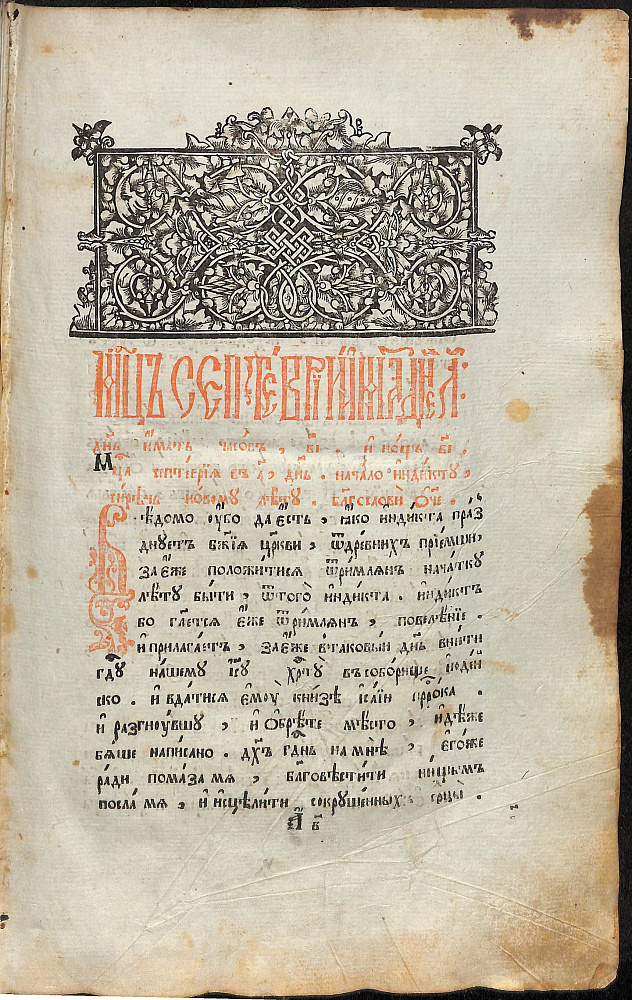 мцъ септеврїй имать дней л҃:
дн҃ь и҆мать часовъ , в҃і . и҆ нощь в҃і .
Мц҃а септеврїа въ а҃ , дн҃ь . начало и҆ндикту ,
си́рѣчь новому лѣту . благословѝ ѻ҆ч҃е .
Вѣдомо оу҆́бо да є҆́сть , ꙗ҆́ко и҆ндикта праз
днуетъ бж҃їѧ цр҃кви , ѿ древнихъ прїемши ,
за є҆́же положитисѧ ѿ римлѧнъ начатку
лѣту бы́ти , ѿ того̀ и҆ндикта . и҆ндиктъ
бо гл҃етсѧ є҆́же ѿ римлѧнъ , повелѣнїе .
и҆ прилага́етъ , за є҆́же в таковы́и дн҃ь вни́ти
гд҃у на́шему і҆с҃у хр҃ту̀ въ соборище і҆юдѣй
ско . и҆ вда́тисѧ є҆моу̀ кни́зѣ і҆са́їи прⷪ҇рока .
и҆ разгноу́вшу , и҆ ѡ҆брѣ́те мѣ́сто , и҆дѣ́же
бѧ́ше написано . дх҃ъ гдⷭ҇нь на мнѣ̀ , є҆гѡ́же
ра́ди пома́за мѧ , бл҃говѣсти́ти ни́щымъ
посла́ мѧ , и҆ и҆сцѣли́ти сокруше́нныхъ срⷣцы .
а҃ в҃